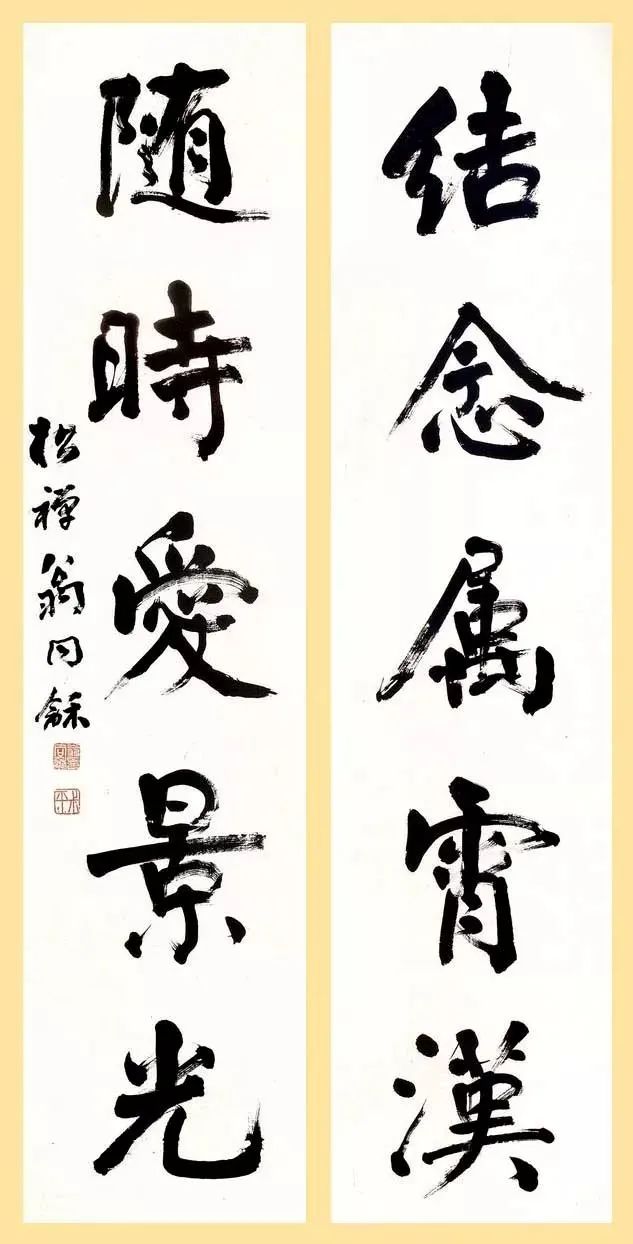 结念属霄漢
随時愛景光
松禅翁同龢